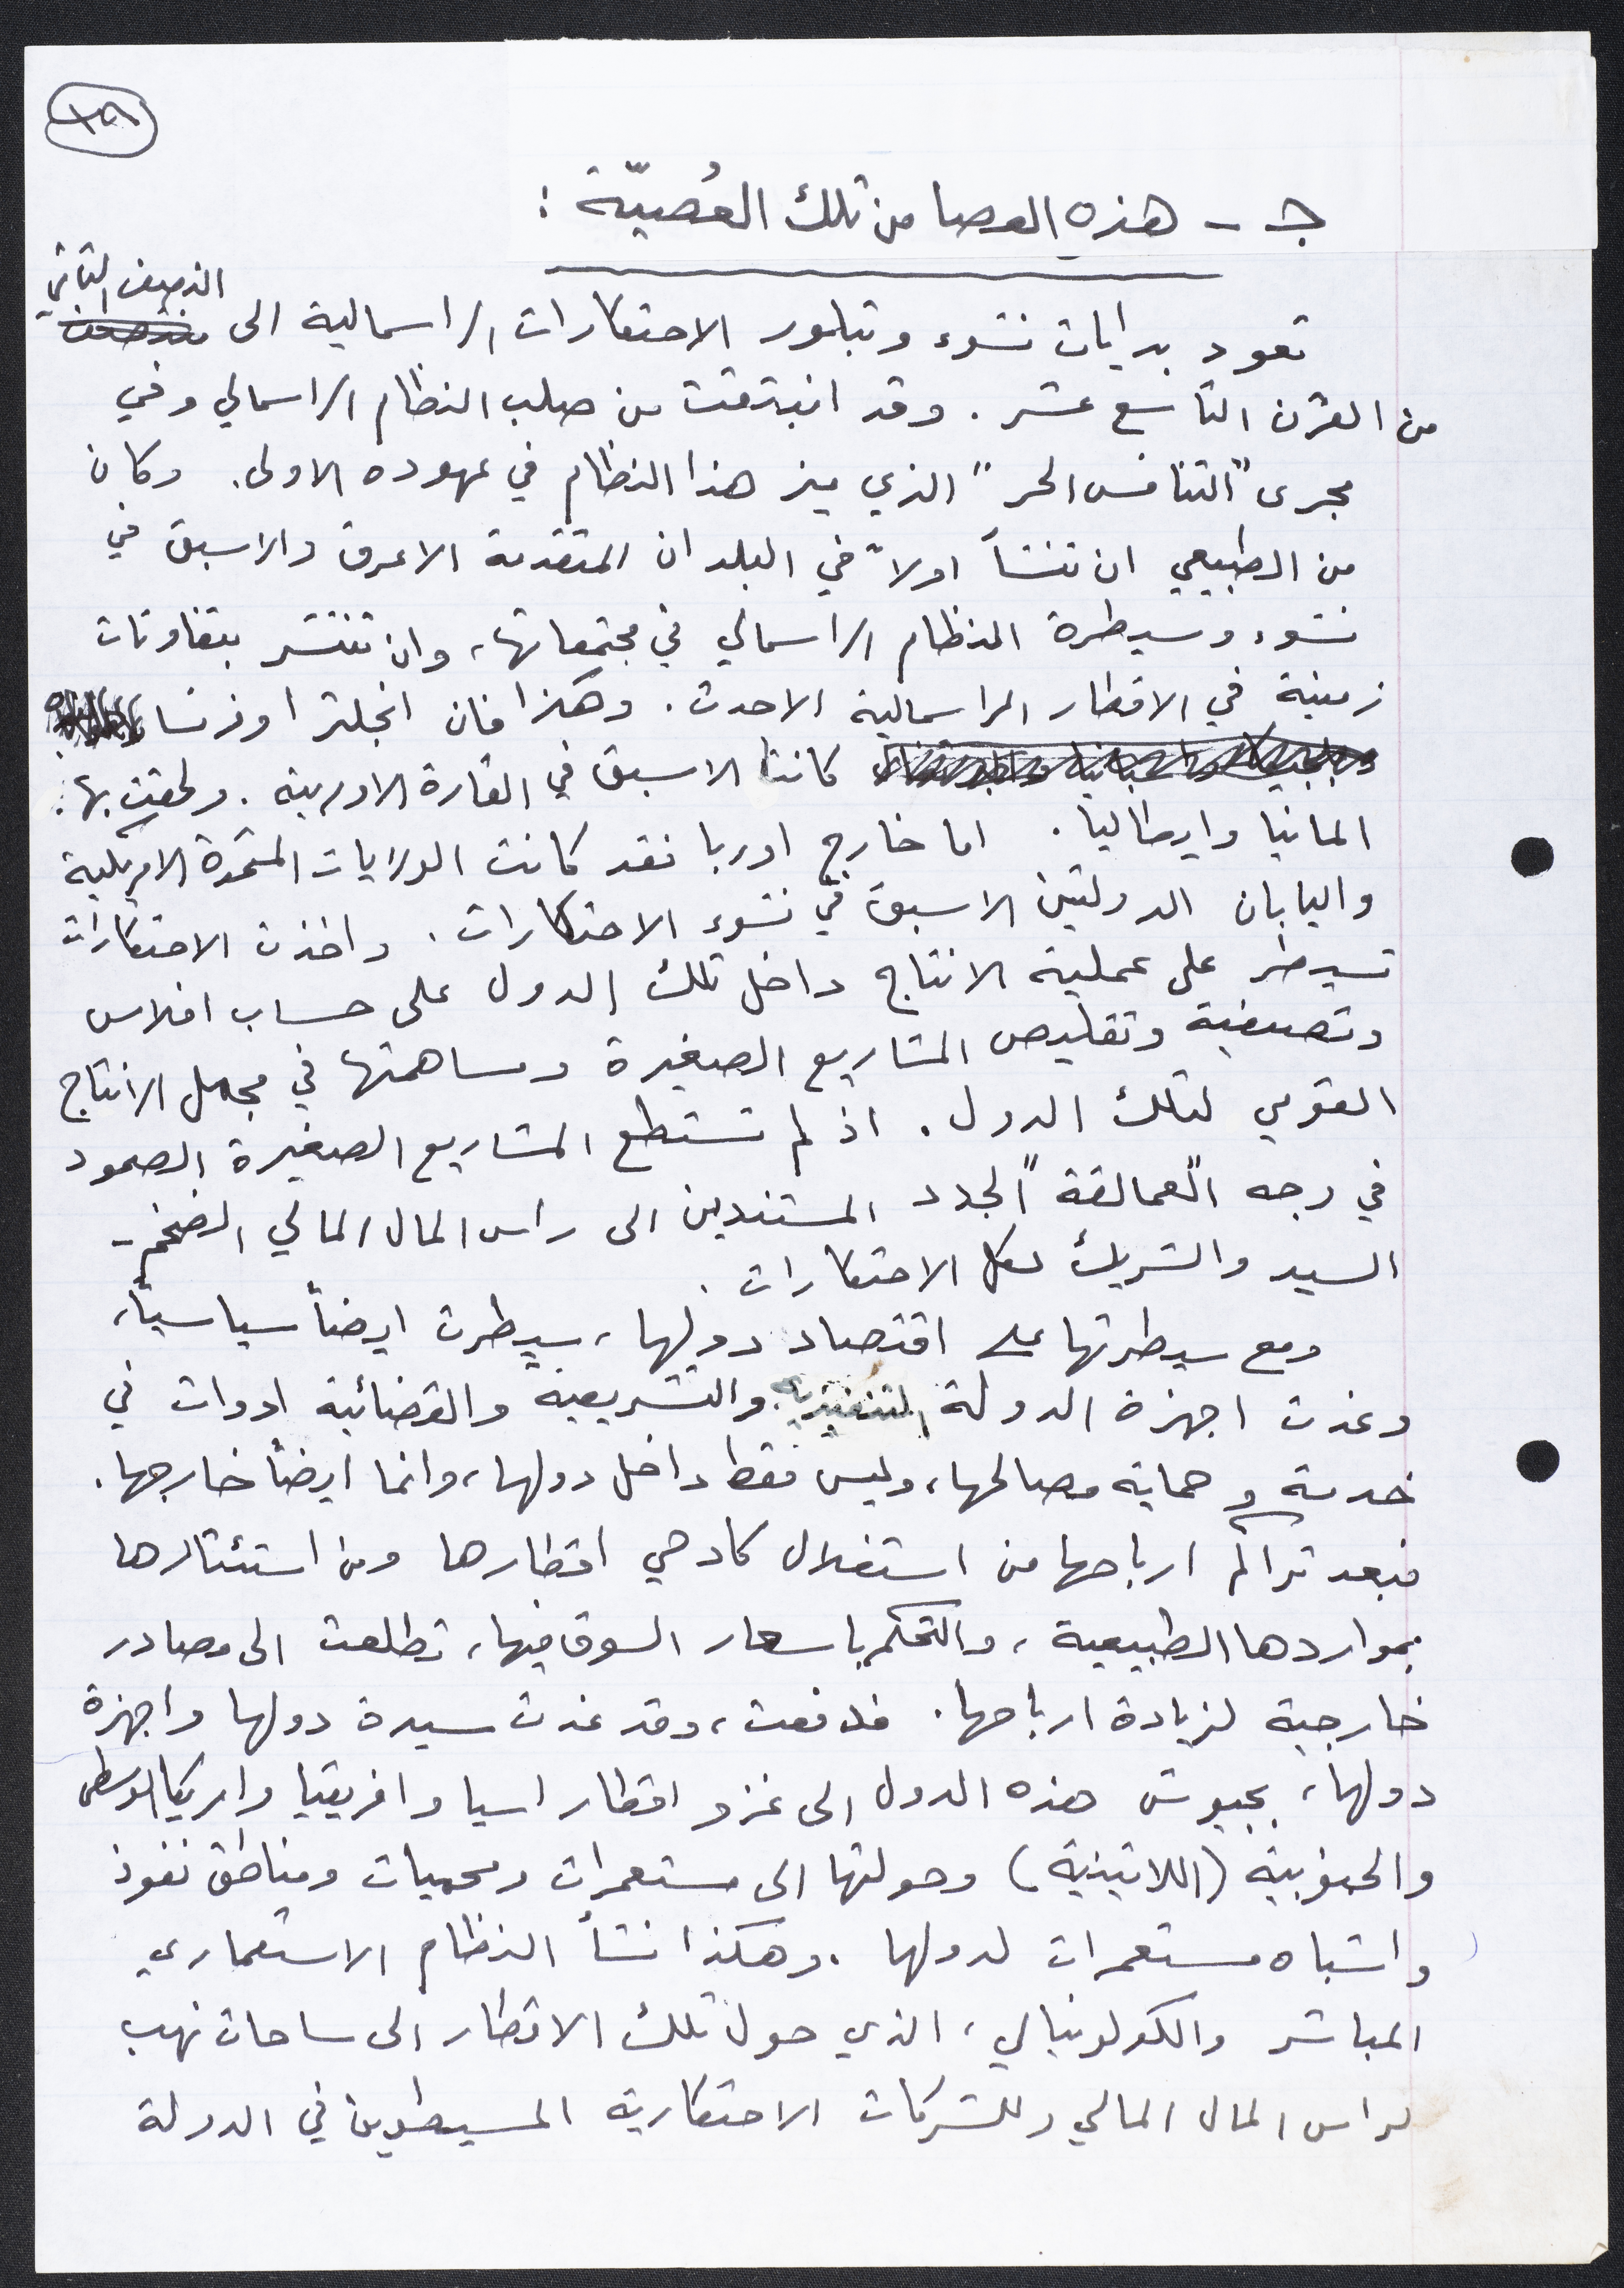 جـ - هذه العصا من تلك العُصيّة :
تعود بدايات نشوء وتبلور الاحتكارات الراسمالية الى النصف الثاني
من القرن التاسع عشر . وقد انبثقت من صلب النظام الراسمالي وفي
مجرى "التنافس الحر" الذي ميز هذا النظام في عهوده الاولى . وكان
من الطبيعي ان تنشأ اولاً في البلدان المتقدمة الاعرق والاسبق في
نشوء وسيطرة النظام الراسمالي في مجتمعاتها، وان تنتشر بتفاوتات
زمنية في الاقطار الراسمالية الاحدث . وهكذا فان انجلترا وفرنسا
كانتا الاسبق في القارة الاوربية . ولحقت بها :
المانيا وايطاليا . اما خارج اوربا فقد كانت الولايات المتحدة الامريكية
واليابان الدولتين الاسبق في نشوء الاحتكارات . واخذت الاحتكارات
تسيطر على عملية الانتاج داخل تلك الدول على حساب افلاس
وتصفية وتقليص المشاريع الصغيرة ومساهمتها في مجمل الانتاج
القومي لتلك الدول . اذ لم تستطع المشاريع الصغيرة الصمود
في وجه "العمالقة" الجدد المستندين الى راس المال المالي الضخم -
السيد والشريك لكل الاحتكارات .
ومع سيطرتها على اقتصاد دولها ، سيطرت ايضاً سياسياً،
وغدت اجهزة الدولة التنفيذية والتشريعية والقضائية ادوات في
خدمة و حماية مصالحها، وليس فقط داخل دولها، وانما ايضاً خارجها .
فبعد تراكم ارباحها من استغلال كادحي اقطارها ومن استئثارها
بمواردها الطبيعية ، والتحكم باسعار السوق فيها، تطلعت الى مصادر
خارجية لزيادة ارباحها . فدفعت، وقد غدت سيدة دولها واجهزة
دولها، بجيوش هذه الدول الى غزو اقطار اسيا وافريقيا وامريكا الوسطى
والجنوبية (اللاتينية) وحولتها الى مستعمرات ومحميات ومناطق نفوذ
واشباه مستعمرات لدولها . وهكذا نشأ النظام الاستعماري
المباشر والكولونيالي، الذي حول تلك الاقطار الى ساحات نهب
لراس المال المالي وللشركات الاحتكارية المسيطرين في الدولة